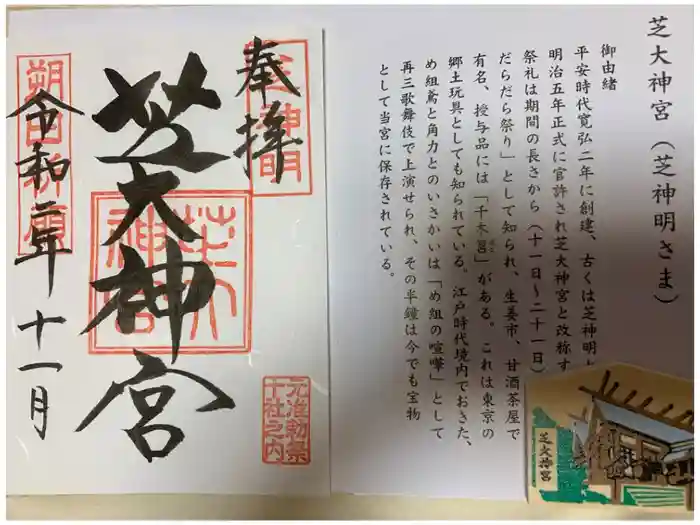 芝大神宮（芝神明さま）
御由緒
平安時代寛弘二年に創建、古くは芝神明
明治五年正式に官許され芝大神宮と改称す
祭礼は期間の長さから（十一日～二十一日）
だらだら祭り」として知られ、生姜市、甘酒茶屋で
有名、授与品には「千木筥」がある。これは東京の
郷土玩具としても知られている。江戸時代境内でおきた、
め組鳶と角力とのいさかいは「め組の喧嘩」として
再三歌舞伎で上演せられ、その半鐘は今でも宝物
として当宮に保存されている。
芝大神宮
奉拝
芝大神宮
芝大神宮
元准勅祭
十社之内
朔日祈願
令和二年十一月